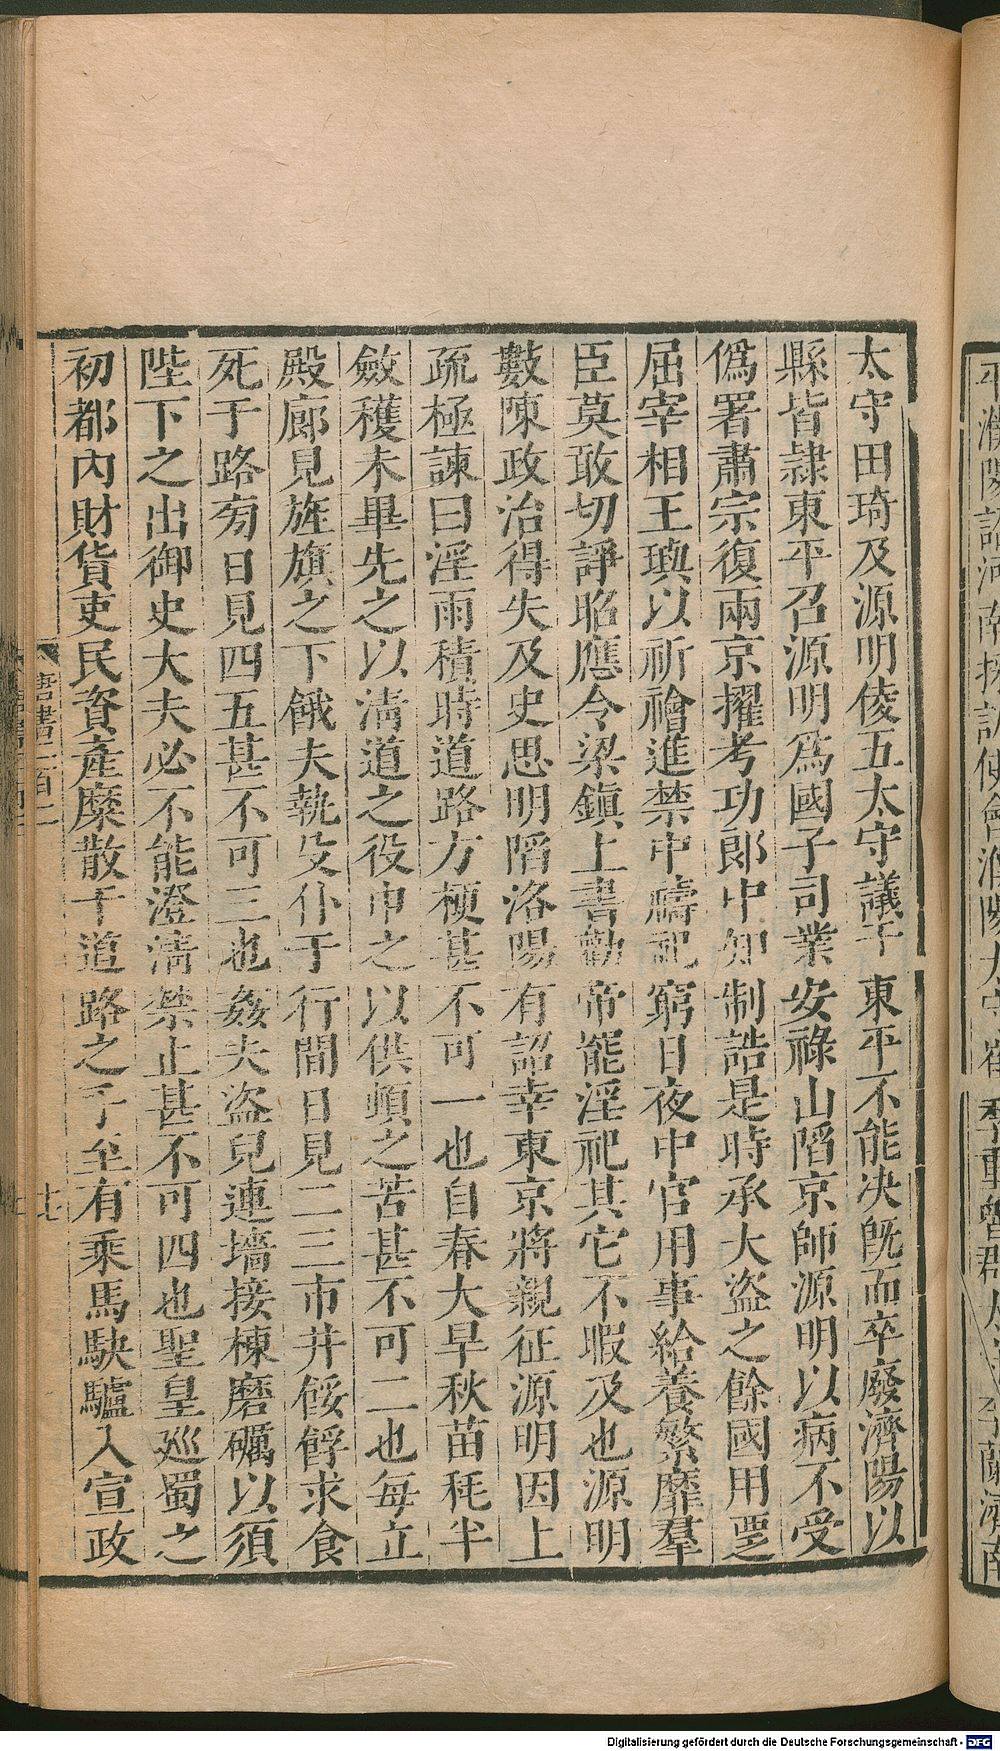 太守田琦及源明倰五太守議于東平不能决旣而卒廢濟陽以
縣皆隷東平召源明爲國子司業安祿山陷京師源明以病不受
僞署肅宗復兩京擢考功郎中知制誥是時承大盜之餘國用覂
屈宰相王璵以祈禬進禁中禱祀窮日夜中官用事給養繁靡羣
臣莫敢切諍昭應令梁鎭上書勸帝罷淫祀其它不暇及也源明
數陳政治得失及史思明陷洛陽有詔幸東京將親征源明因上
疏極諫曰淫雨積時道路方梗甚不可一也自春大旱秋苗秏半
斂穫未畢先之以淸道之役申之以供頓之苦甚不可二也每立
殿廊見旌旗之下餓夫執殳仆于行間日見二三市井餒殍求食
死于路旁日見四五甚不可三也姦夫盜兒連墻接棟磨礪以須
陛下之出御史大夫必不能澄淸禁止甚不可四也聖皇巡蜀之
初都內財貨吏民資產糜散于道路之手至有乘馬駃驢入宣政
唐書二百二
十七
Digitalisierung gefördert durch die Deutsche Forschungsgemeinschaft - DFG